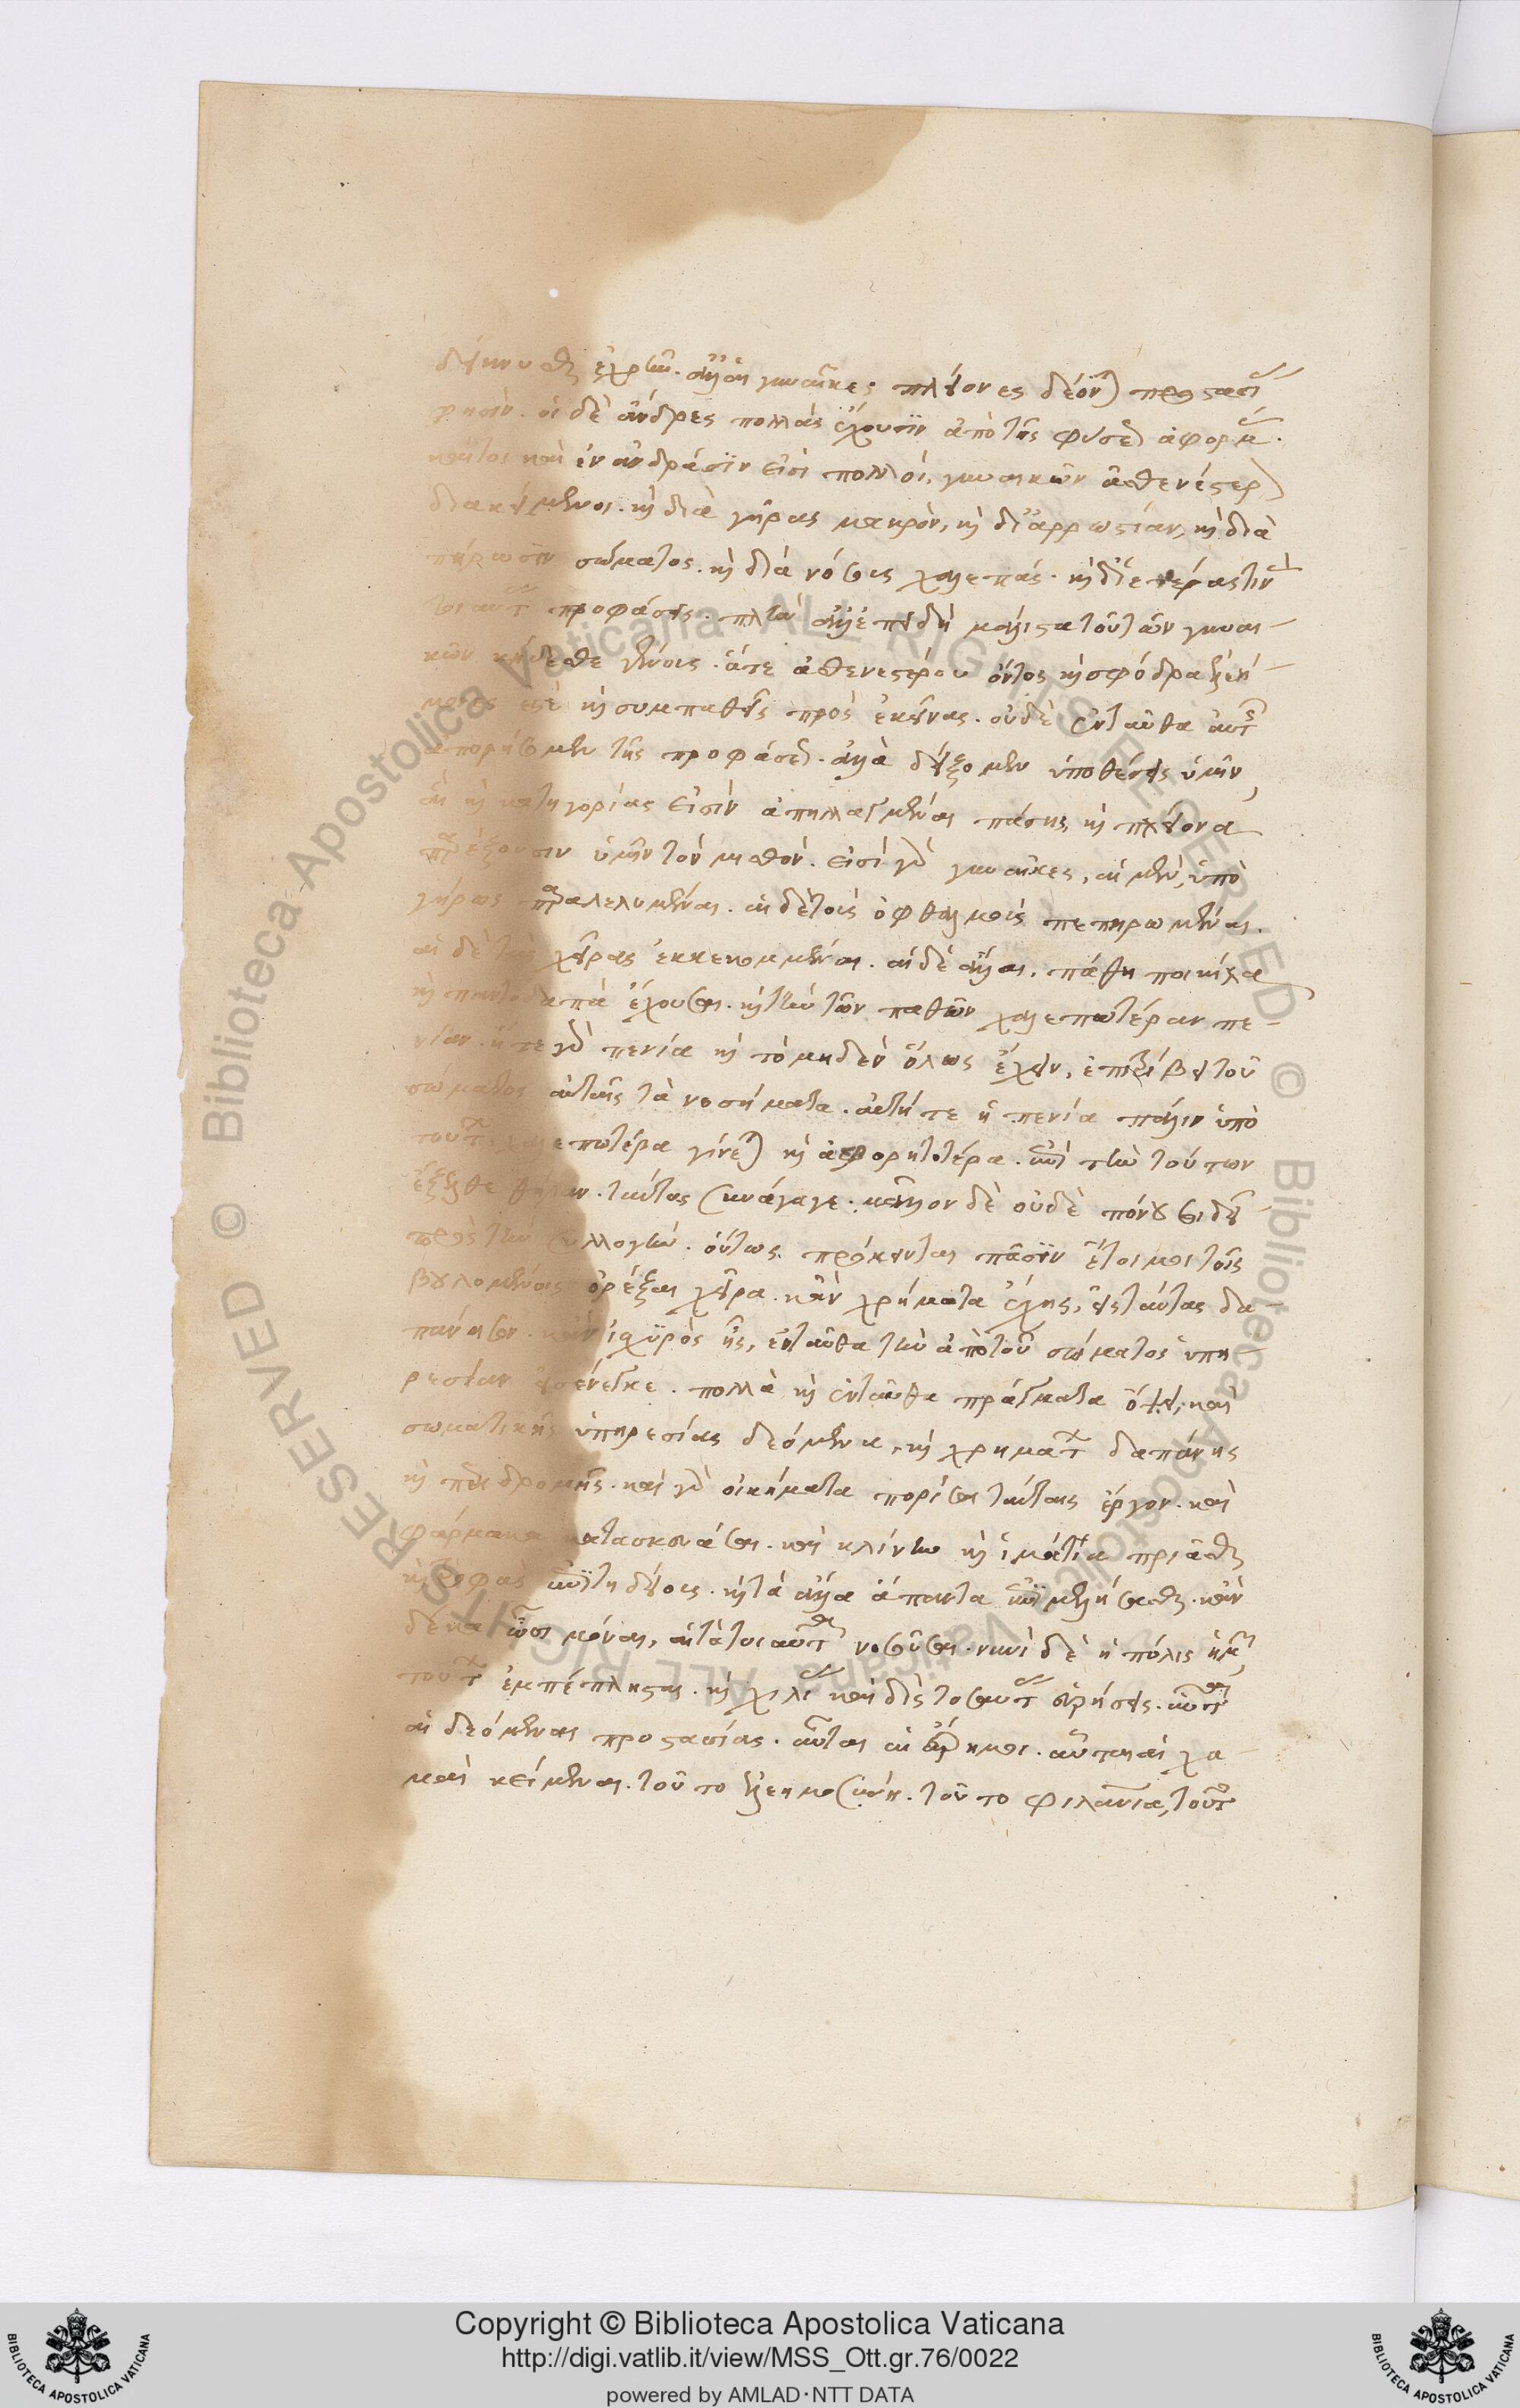 δείκνυσθαι ἐχρῆν. ἀλλ' αἱ γυναῖκες πλείονος δέονται προστασίας
φησίν. οἱ δὲ ἄνδρες πολλὰς ἔχουσιν ἀπὸ τῆς φύσεως ἀφορμάς.
καίτοι καὶ ἐν ἀνδράσιν εἰσὶ πολλοί, γυναικῶν ἀσθενέστερον
διακείμενοι. καὶ διὰ γῆρας μακρὸν, καὶ δι' ἀρρωστίαν, καὶ διὰ
πήρωσιν σώματος. καὶ διὰ νόσους χαλεπάς. καὶ δι' ἑτέρας τινὰς
τοιαύτας προφάσεις. πλὴν ἀλλ' ἐπειδὴ μάλιστα τοῦ τῶν γυναι-
κῶν κήδεσθε γένους. ἅτε ἀσθενεστέρου ὄντος καὶ σφόδρα ἐλεή-
μονές ἐστε καὶ συμπαθεῖς πρὸς ἐκείνας. οὐδὲ ἐνταῦθα αὐτοὺς
ἀπορήσομεν τῆς προφάσεως. ἀλλὰ δείξομεν ὑποθέσεις ὑμῖν,
αἳ καὶ κατηγορίας εἰσὶν ἀπηλλαγμέναι πάσης, καὶ πλείονα
παρέξουσιν ὑμῖν τὸν μισθόν. εἰσὶ γὰρ γυναῖκες, αἱ μὲν, ὑπὸ
γήρως παραλελυμέναι. αἱ δὲ τοὺς ὀφθαλμοὺς πεπηρωμέναι.
αἱ δὲ τὰς χεῖρας ἐκκεκομμέναι. αἱ δὲ ἄλλαι, πάθη ποικίλα
καὶ παντοδαπὰ ἔχουσαι. καὶ τὴν τῶν παθῶν χαλεπωτέραν πε-
νίαν. ἥ τε γὰρ πενία καὶ τὸ μηδὲν ὅλως ἔχειν, ἐπιτρίβει τοῦ
σώματος αὐταῖς τὰ νοσήματα. αὐτή τε ἡ πενία πάλιν ὑπὸ
τούτων χαλεπωτέρα γίνεται καὶ ἀφορητοτέρα. ἐπὶ τὴν τούτων
ἔξελθε θήραν. ταύτας συνάγαγε. μᾶλλον δὲ οὐδὲ πόνου σοι δεῖ
πρὸς τὴν συλλογήν. οὕτως πρόκεινται πᾶσιν ἕτοιμοι τοῖς
βουλομένοις ὀρέξαι χεῖρα. κἂν χρήματα ἔχῃς, εἰς ταύτας δα-
πάνησον. κἂν ἰσχυρὸς ᾖς, ἐνταῦθα τὴν ἀπὸ τοῦ σώματος ὑπη-
ρεσίαν εἰσένεγκε. πολλὰ καὶ ἐνταῦθα πράγματα ὄψει, καὶ
σωματικῆς ὑπηρεσίας δεόμενα, καὶ χρημάτων δαπάνης
καὶ περιδρομῆς. καὶ γὰρ οἰκήματα πορίσαι ταύταις ἔργον. καὶ
φάρμακα κατασκευάσαι. καὶ κλίνην καὶ ἱμάτια πρίασθαι
καὶ τροφὰς ἐπιτηδείους. καὶ τὰ ἄλλα ἅπαντα ἐπιμελήσασθαι. κἂν
δέκα ὦσι μόναι, αἱ τὰ τοιαῦτα νοσοῦσαι. νυνὶ δὲ ἡ πόλις ἡμῖν
τούτων ἐμπέπλησται. καὶ χιλίας καὶ δὶς τοσαύτας εὑρήσεις. αὗται
αἱ δεόμεναι προστασίας. αὗται αἱ ἔρημοι. αὗται αἱ χα-
μαὶ κείμεναι. τοῦτο ἐλεημοσύνη. τοῦτο φιλανθρωπία, τοῦτο
Copyright © Biblioteca Apostolica Vaticana
http://digi.vatlib.it/view/MSS_Ott.gr.76/0022
powered by AMLAD·NTT DATA
BIBLIOTECA APOSTOLICA VATICANA
BIBLIOTECA APOSTOLICA VATICANA
© Biblioteca Apostolica Vaticana ALL RIGHTS RESERVED
© Biblioteca Apostolica Vaticana ALL RIGHTS RESERVED